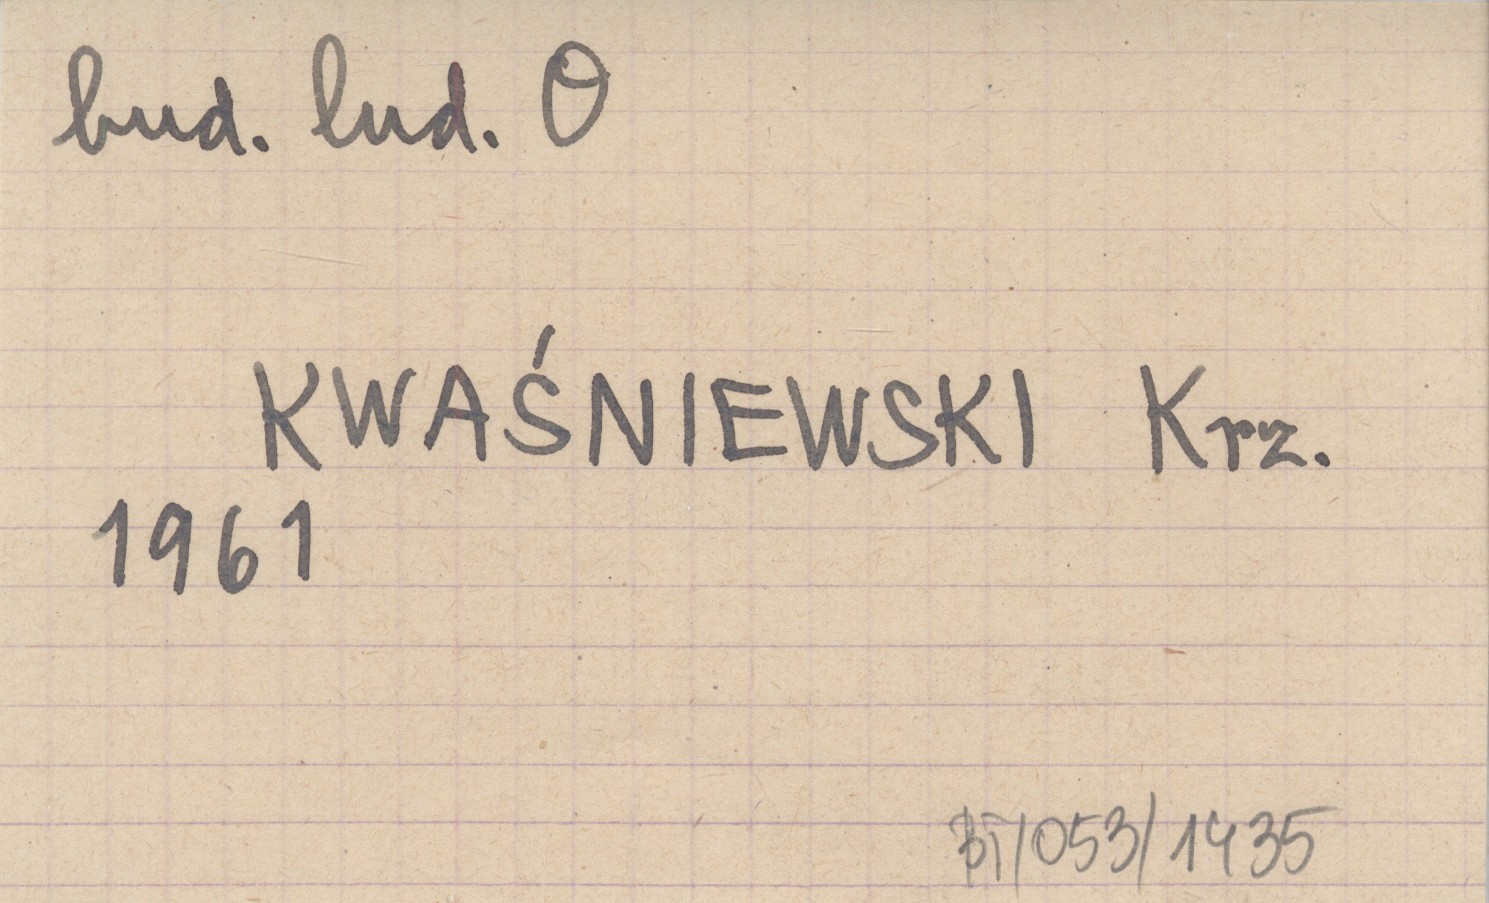 bud. lud. O
KWAŚNIEWSKI Krz.
1961
BT/053/1435